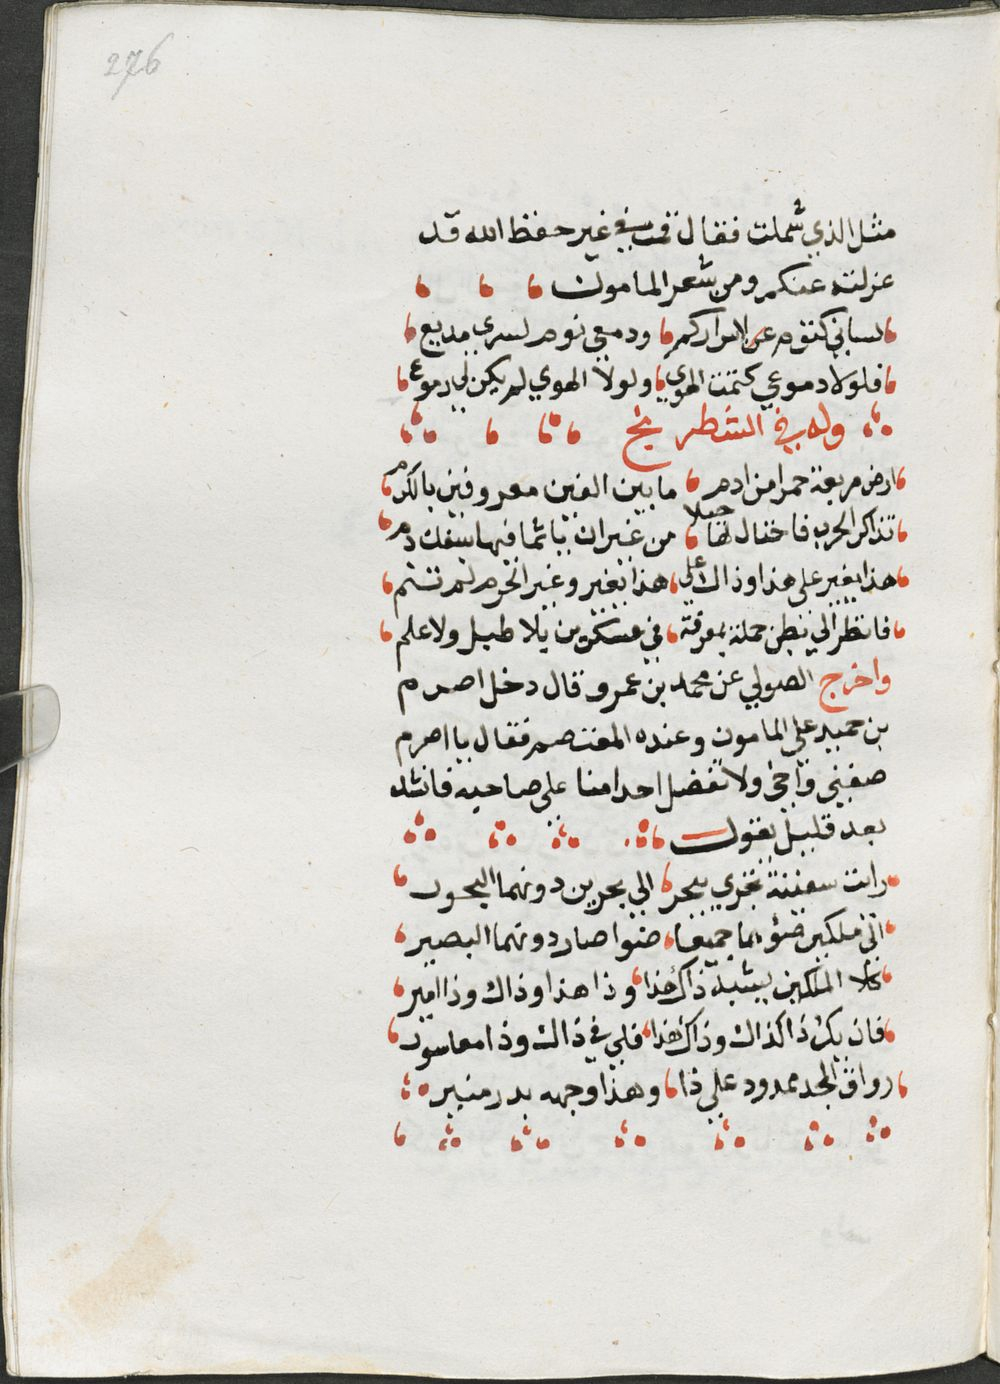 276
مثل الذي شملت فقال قمت في غير حفظ الله قد
عزلته عنكم ومن شعر المامون
لساني كتوم عن لاسراركم ودمعي نوم لسري مديع
فلولا دموعي كتمت الهوي ولولا الهوي لم يكن لي دموع
وله في الشطرنج
ارض مربعة حمرا من ادم ما بين الفين معروفين بالكرم
تذاكر الحرب فاحتال لها حيلا من غير ان ياثما فيها بسفك دم
هذا يغير على هذا وذاك على هذا يغير وغير الحزم لم تنم
فانظر الي بطن حملة بمعرفة في عسكرين بلا طبل ولا علم
واخرج الصولي عن محمد بن عمرو قال دخل اصرم
بن حميد على المامون وعنده المعتصم فقال يا اصرم
صفني واخي ولا تفضل احدا منا على صاحبه فانشد
بعد قليل يقول
رايت سفينة تجري ببحر الي بحرين دونهما البحور
الي ملكين ضوءهما جميعا ضوا صار دونهما البصير
كلا الملكين يشبه ذاك هذا وذا هذا وذاك وذا امير
فان يك ذا كذاك وذاك هذا فلي في ذاك وذا معا سرور
رواق المجد ممدود على ذا وهذا وجهه بدر منير